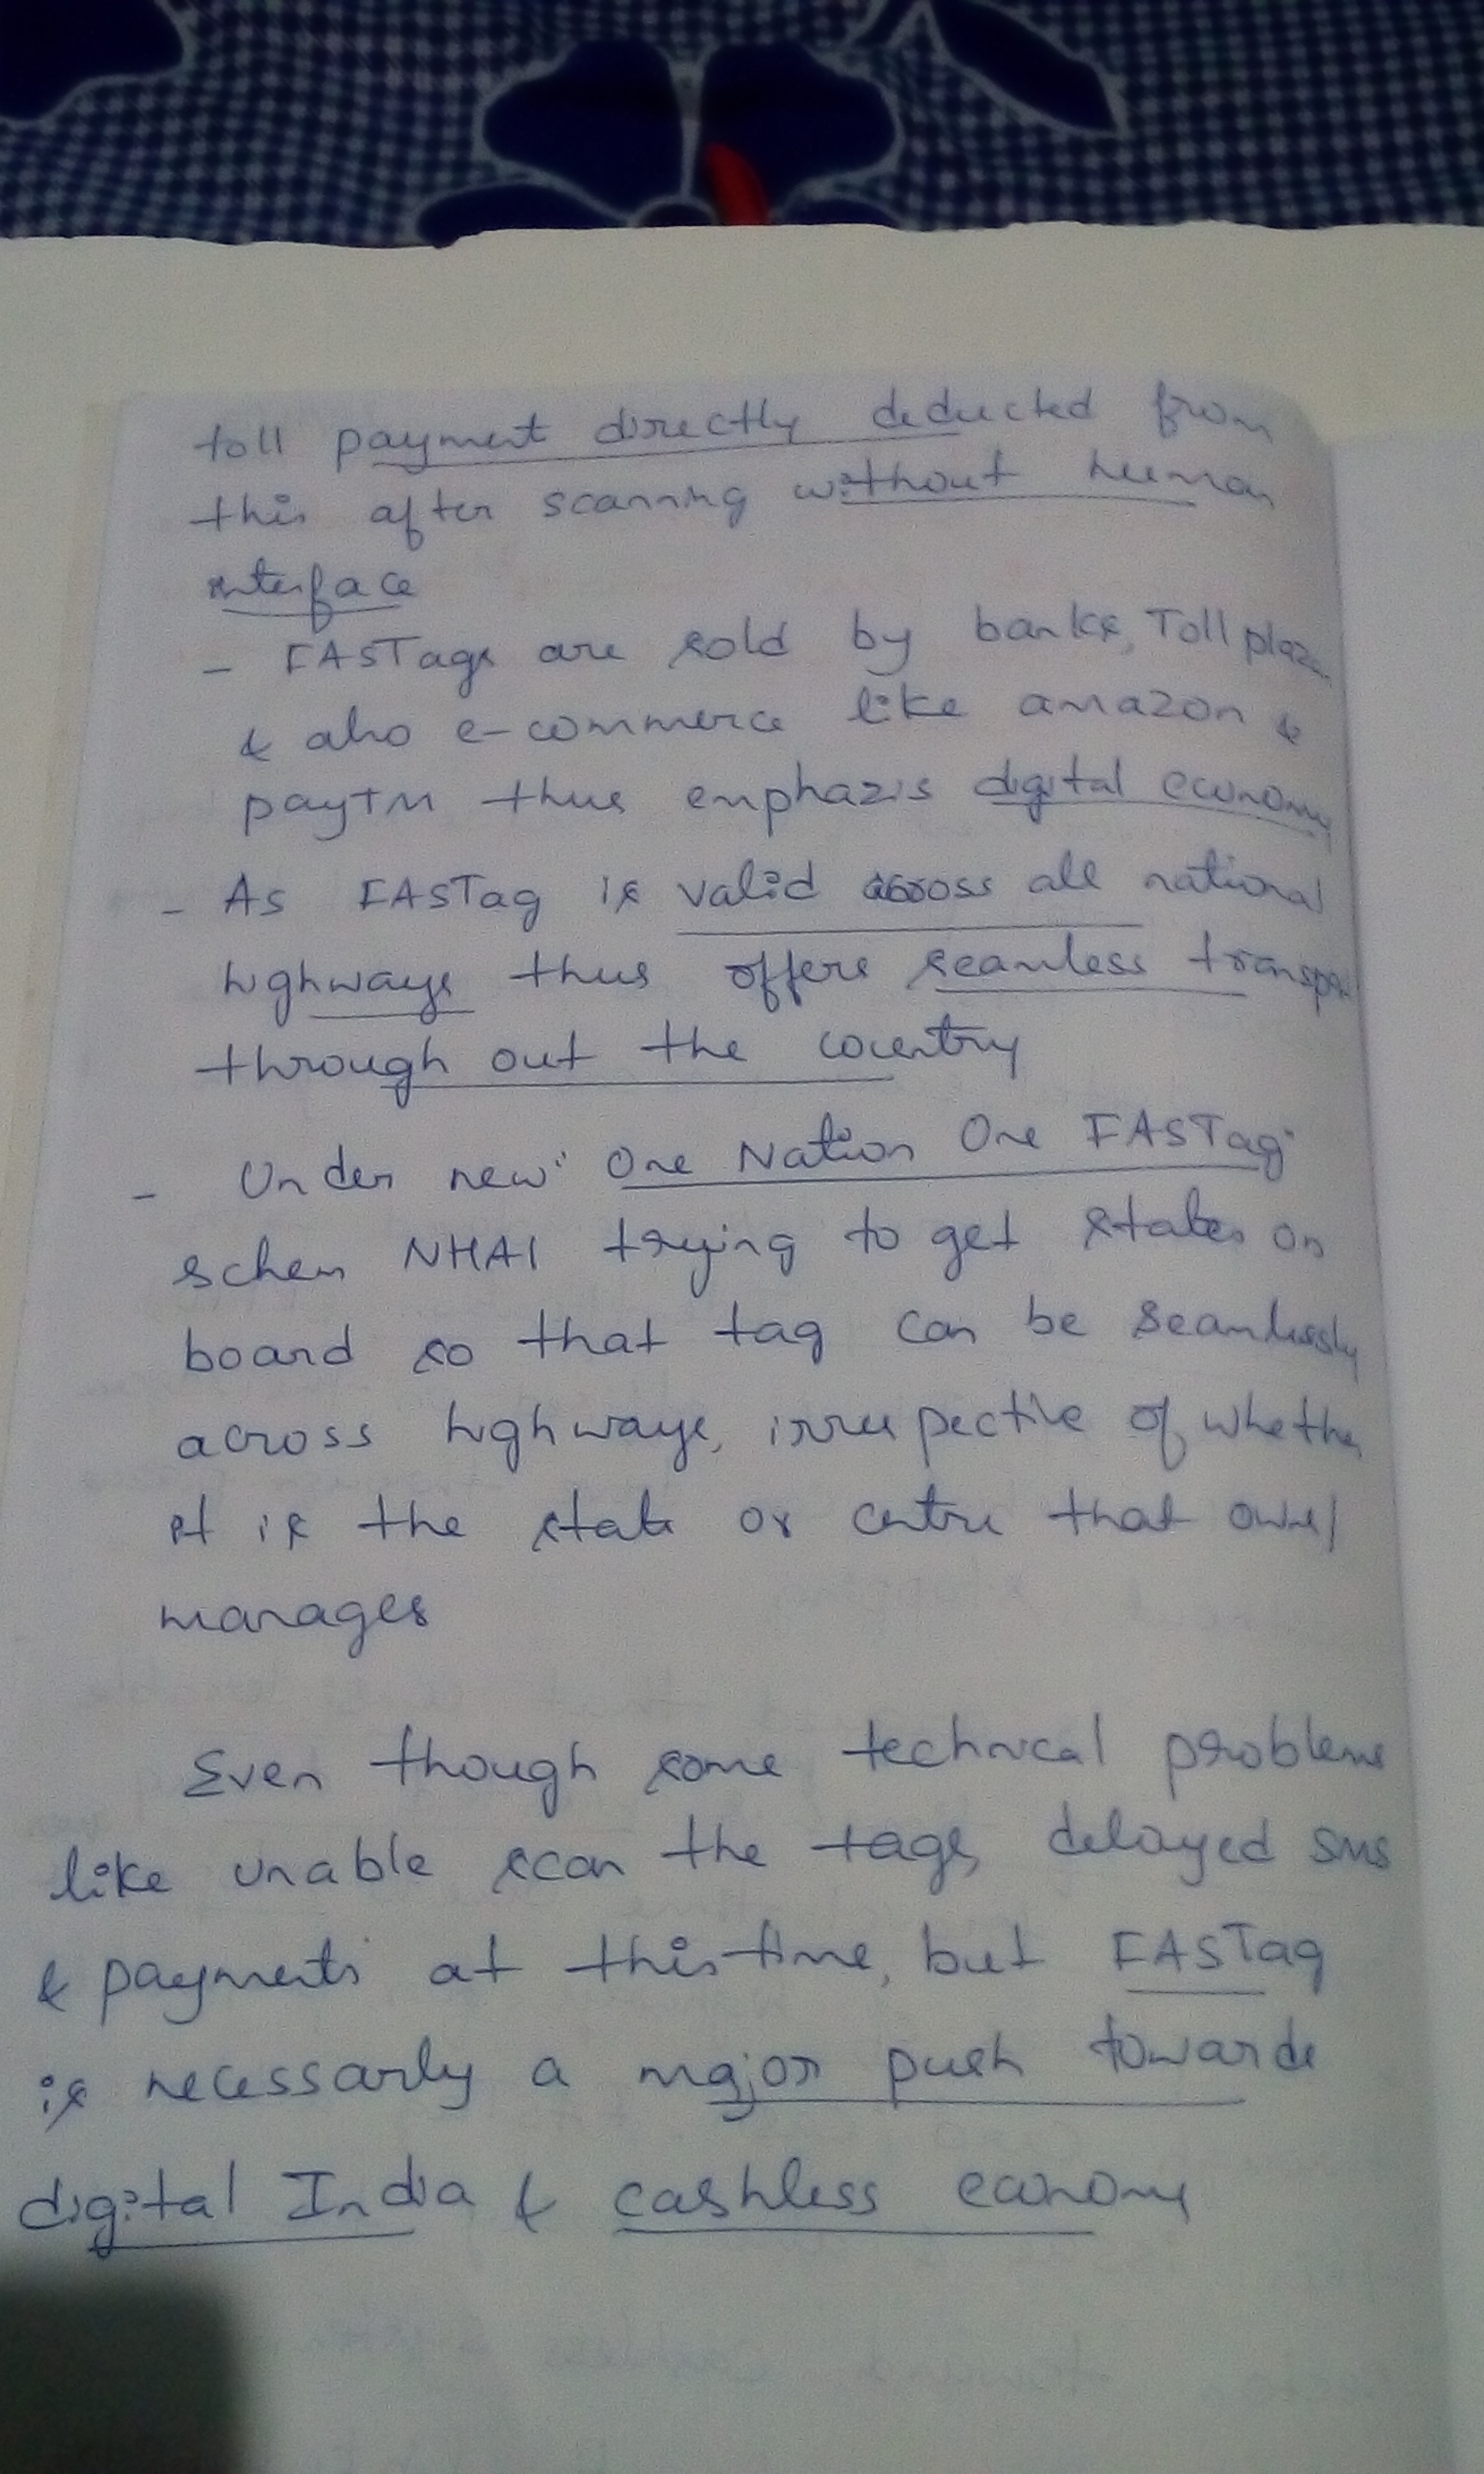 toll payment directly deducted from
this after scanning without human
interface
- FASTags are sold by banks, Toll plaza
& also e-commerce like amazon &
paytm thus emphazis digital economy
- As FASTag is valid across all national
highways thus offers seamless transport
through out the country
- Under new "One Nation One FASTag"
schem NHAI trying to get states on
board so that tag can be seamlessly
across highways, irrespective of whether
it is the state or centre that owns/
manages
Even though some technical problems
like unable scan the tags, delayed SMS
& payments at this time, but FASTag
is necessarly a major push towards
digital India & cashless economy